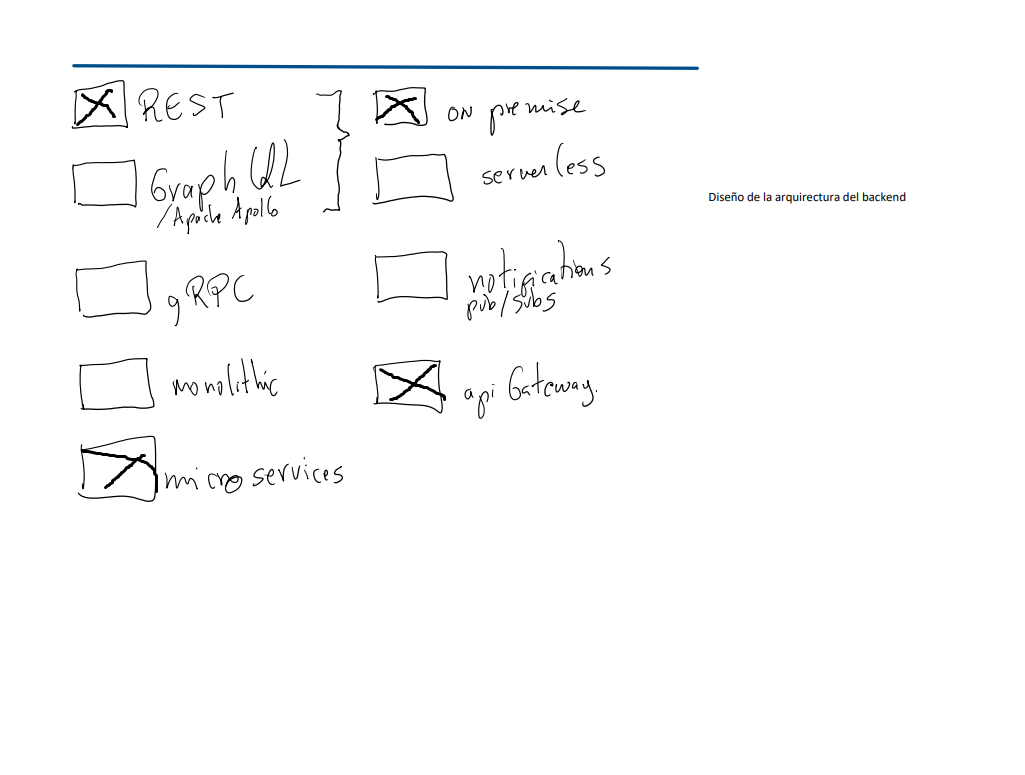 REST
GraphQL
/Apache Apollo
gRPC
monolithic
micro services
on premise
serverless
notifications
pub/subs
api Gateway.
Diseño de la arquirectura del backend